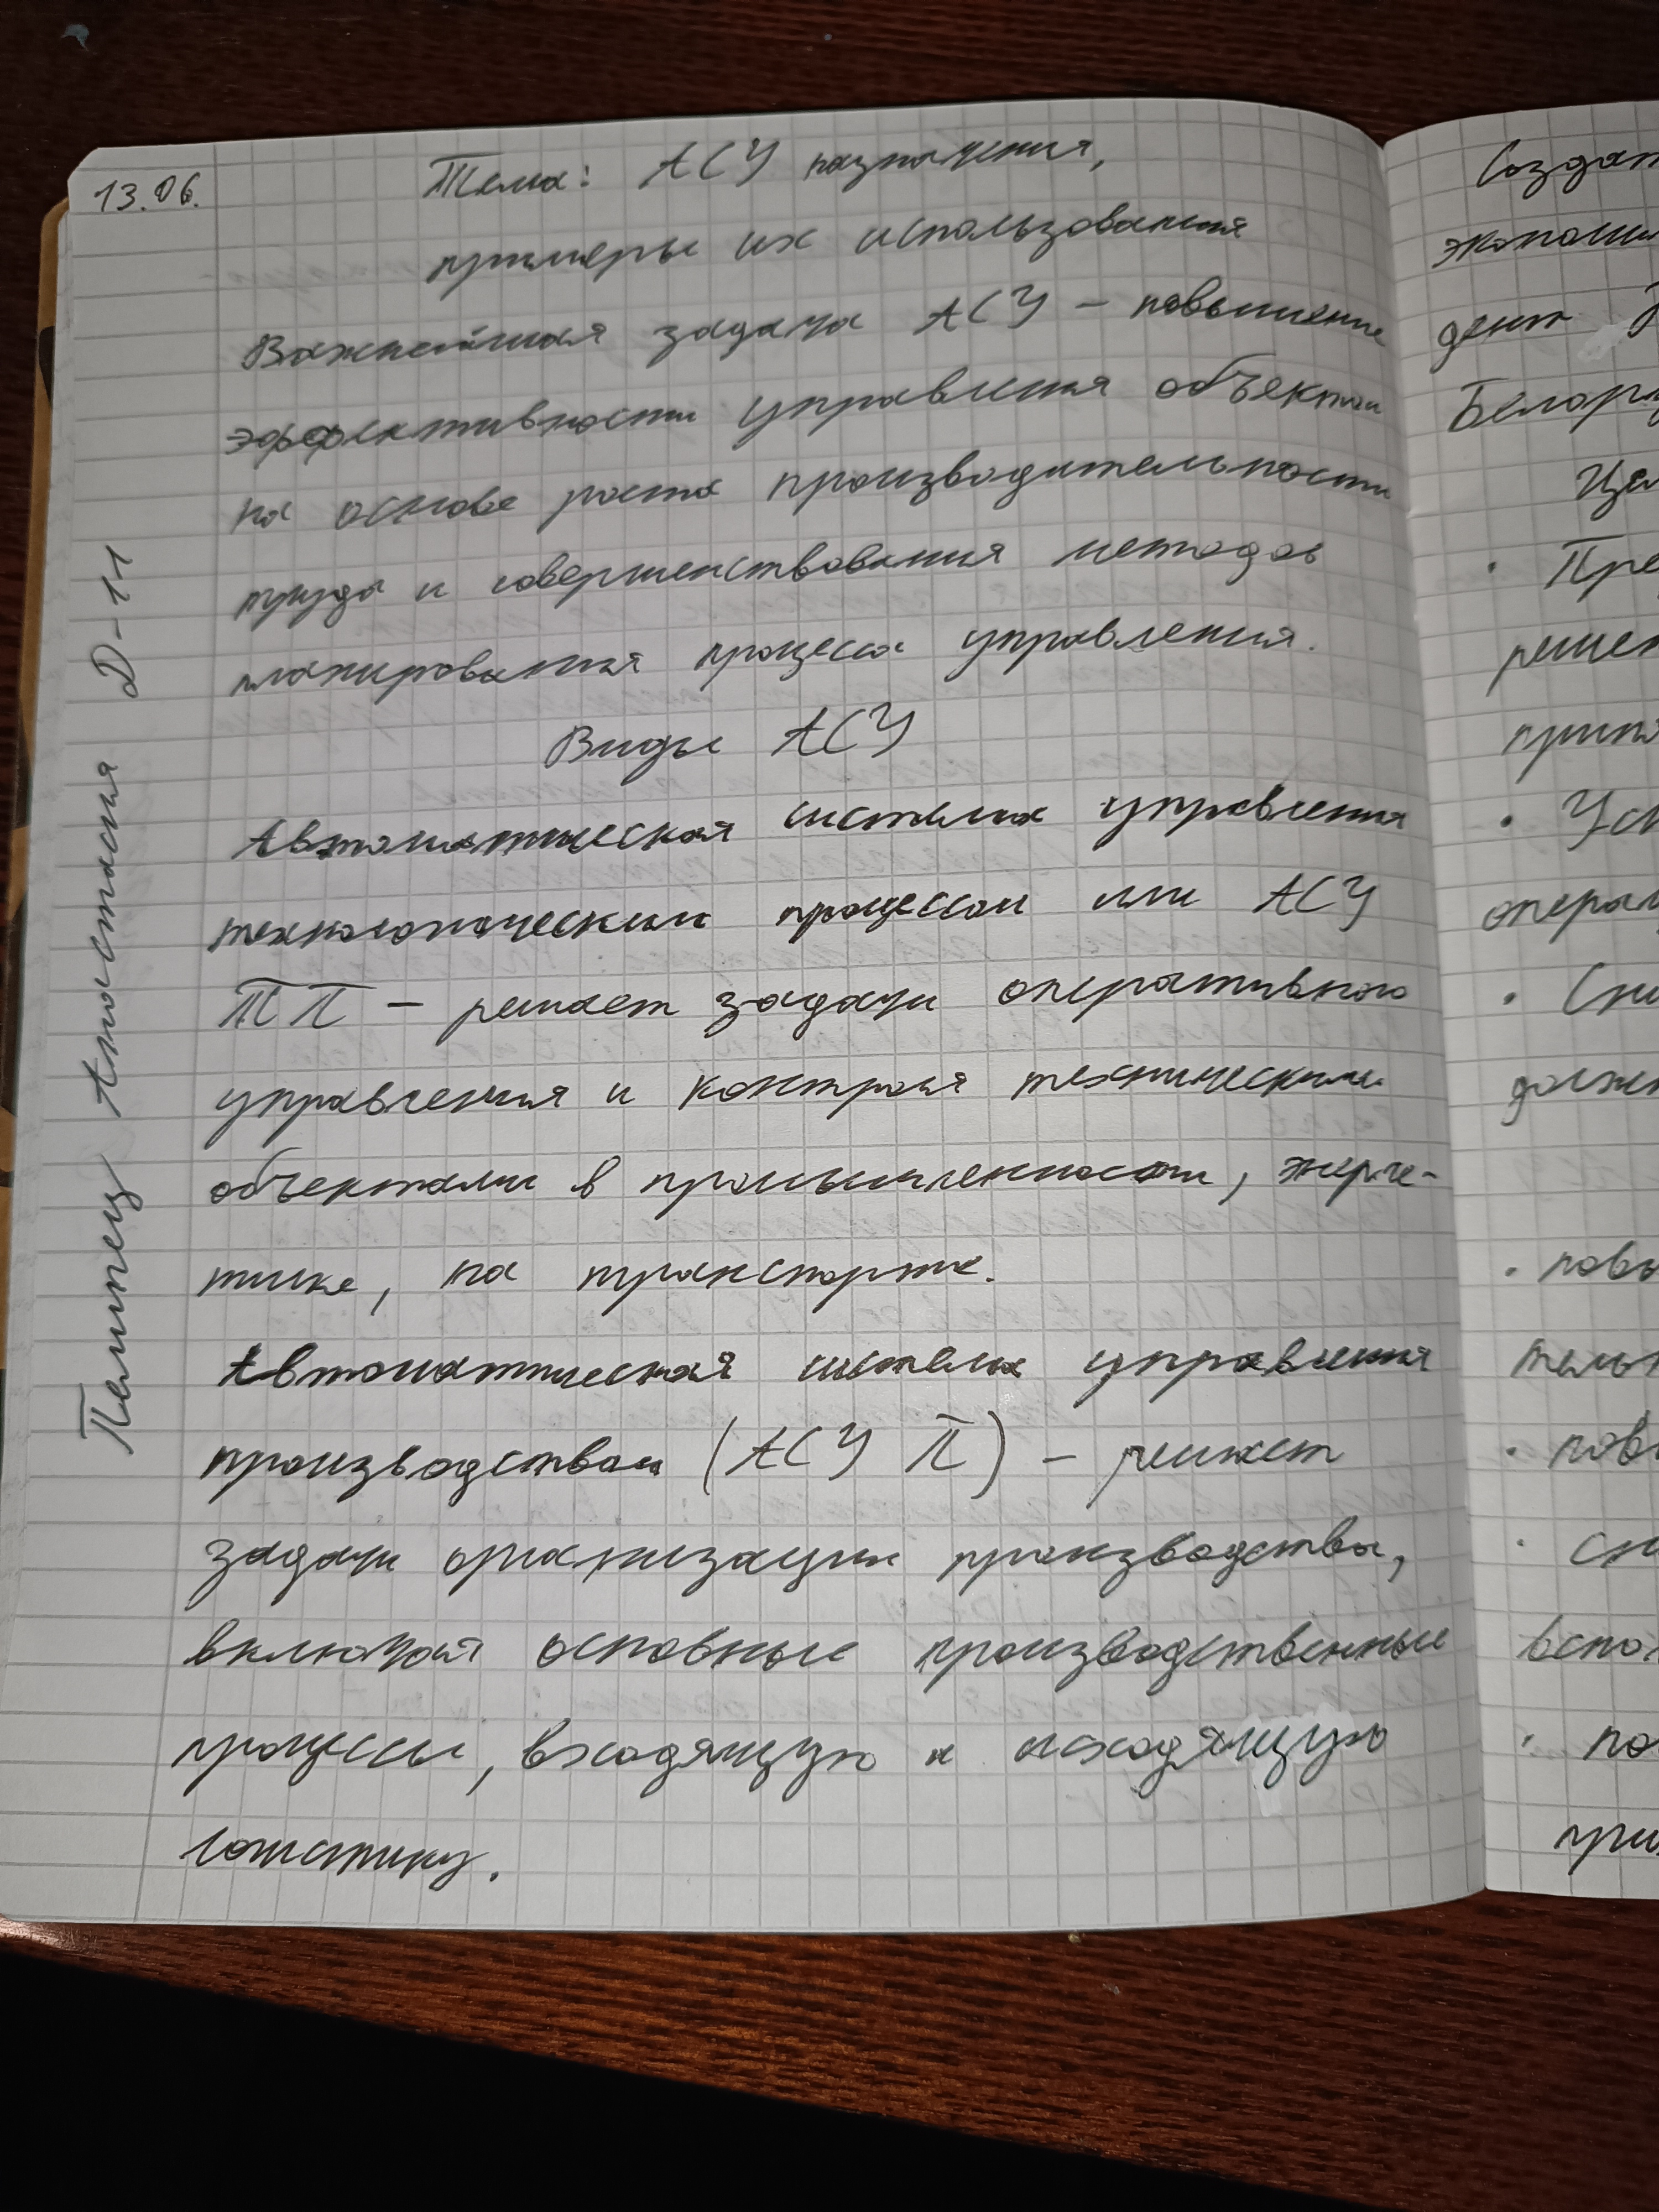 13.06.
Тема: АСУ назначения,
примеры их использования
Важнейшая задача АСУ – повышение
эффективности управления объектом
на основе роста производительности
труда и совершенствования методов
планирования процесса управления.
Виды АСУ
Автоматическая система управления
технологическим процессом или АСУ
ТП – решает задачи оперативного
управления и контроля техническими
объектами в промышленности, энерге-
тике, на транспорте.
Автоматическая система управления
производством (АСУ П) – решает
задачи организации производства,
включая основные производственные
процессы, входящую и исходящую
логистику.
Анастасия Д-11
Создат
экономи
дент
Белору
Цел
· Пре
решен
приня
· Уск
операт
· Сни
должн
· повы
тельн
· повы
· сни
вспом
· по
при